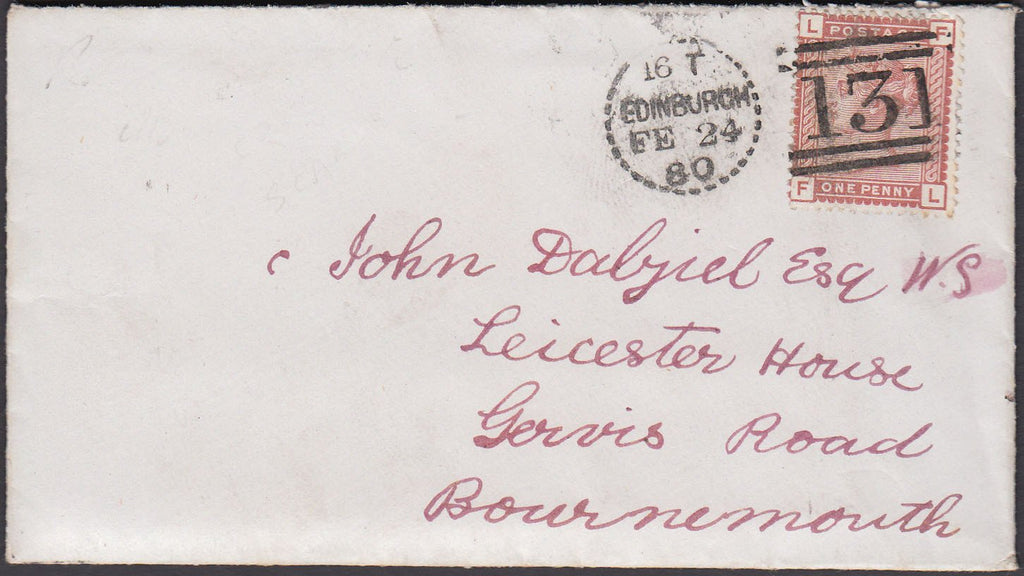 L POSTAGE F
131
F ONE PENNY L
16 T
EDINBURGH
FE 24
80
John Dalziel Esq W.S
Leicester House
Gervis Road
Bournemouth